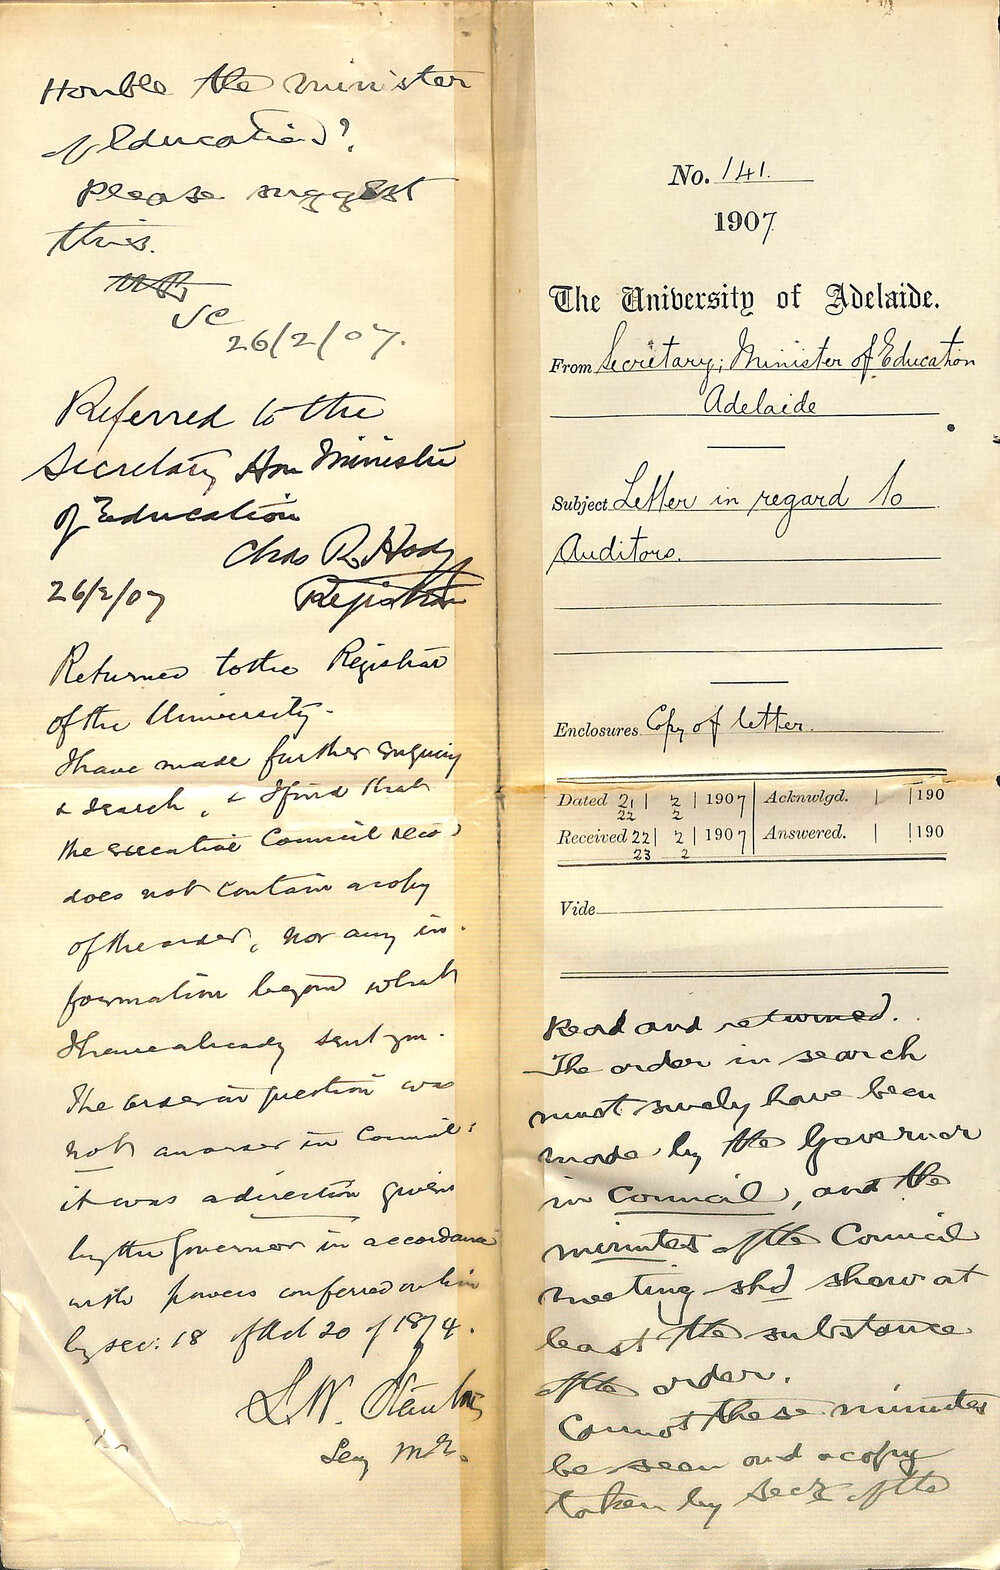 No. 141.
1907
The University of Adelaide.
From Secretary, Minister of Education
Adelaide
Subject Letter in regard to
Auditors.
Enclosures Copy of letter.
Dated 21 | 2 | 1907 Acknwlgd. | | 190
22 2
Received 22 | 2 | 1907 Answered. | | 190
23 2
Vide
Read and returned.
The order in search
must surely have been
made by the Governor
in Council, and the
minutes of the Council
meeting shd show at
least the substance
of the order.
Cannot these minutes
be seen and a copy
taken by Secy of the
Honble the minister
of Education?
Please suggest
this.
VC
26/2/07.
Referred to the
Secretary Hon Minister
of Education
Chas R. Hodge
26/2/07 Registrar
Returned to the Registrar
of the University.
I have made further enquiry
& search, & I find that
the executive Council
does not contain a copy
of the order, nor any in-
formation beyond what
I have already sent you.
The order in question was
not an order in Council:
it was a direction given
by the Governor in accordance
with powers conferred on him
by sec: 18 of Act 20 of 1874.
L. W. Stanton
Secy M.E.